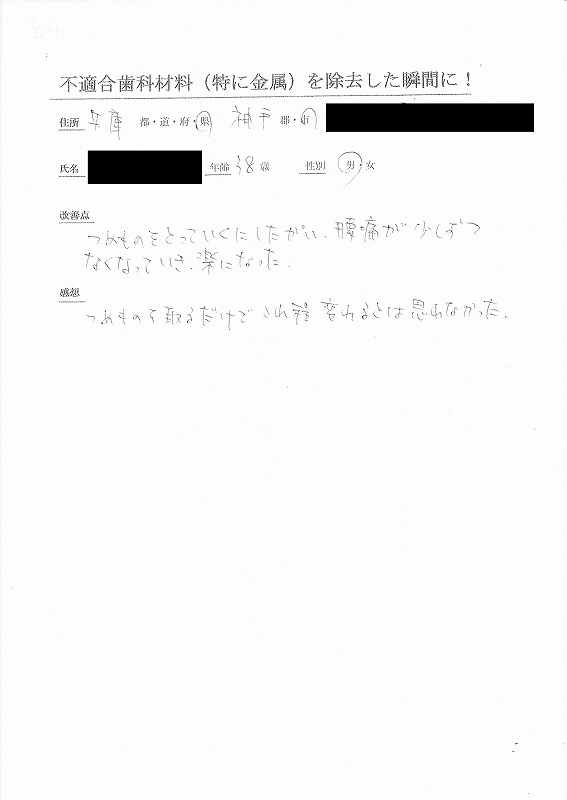 不適合歯科材料（特に金属）を除去した瞬間に！
住所 兵庫 都・道・府・県 神戸 郡・市
氏名 年齢 38 歳 性別 男・女
改善点
つめものをとっていくにしたがい、腰痛が少しずつ
なくなっていき、楽になった。
感想
つめものを取るだけで これ程 変れるとは思わなかった。